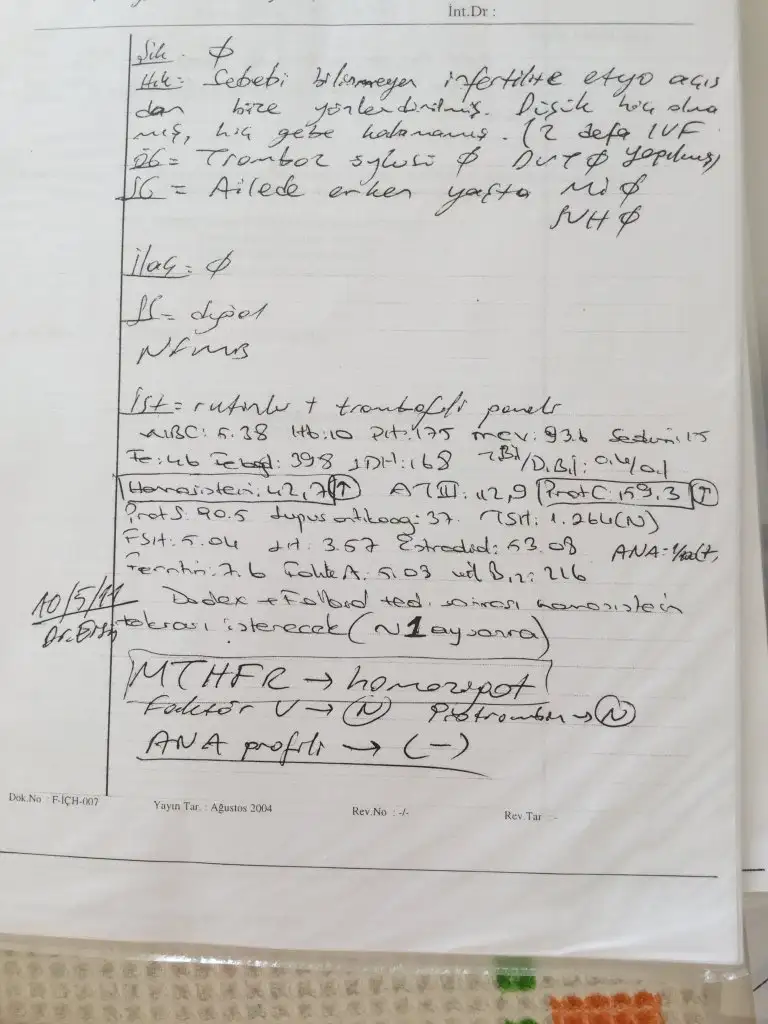 İnt.Dr :
Şik. Ø
Hik= Sebebi bilinmeyen infertilite etyo açıs
dan bize yönlendirilmiş. Düşük hiç olma
mış, hiç gebe kalmamış. (2 defa IVF
yapılmış)
ÖG= Tromboz öyküsü Ø DVT Ø
SG= Ailede erken yaşta MI Ø
SVH Ø
İlaç= Ø
SS= doğal
NFMB
İst= rutinler + trombofili paneli
WBC: 5.38 Hb:10 Plt:175 mcv: 93.6 Sedim:15
Fe:46 Febağ: 398 LDH:168 T.Bil/D.Bil: 0.4/0.1
Homosistein: 42,7 ↑ AT III: 112,9 Prot C: 159.3 ↑
Prot S: 90.5 Lupus antikoag: 37 TSH: 1.264(N)
FSH: 5.04 LH: 3.57 Estradiol: 53.08 ANA=
Ferritin: 7.6 Folik A: 5.03 vit B12: 216
10/5/11 Dodex + Folbiol ted. sonrası homosistein
Dr. tekrarı istenecek (~1 ay sonra)
MTHFR → homozigot
Faktör V → N Protrombin → N
ANA profili → (-)
Dok.No : F-İÇH-007 Yayın Tar. : Ağustos 2004 Rev.No : -/- Rev.Tar : -